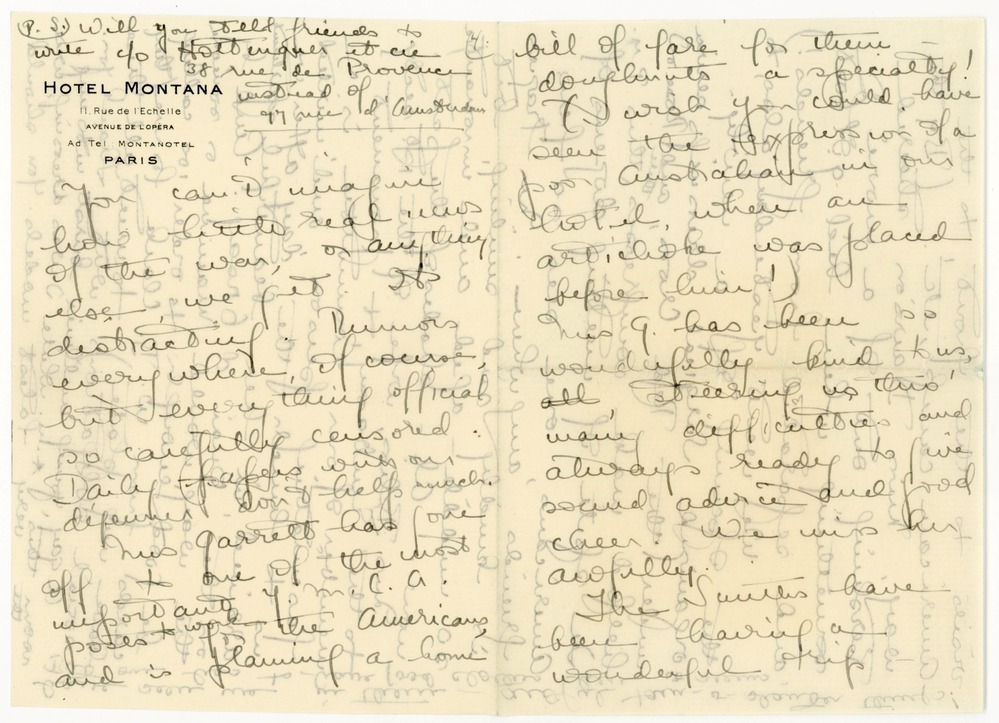 (P.S.) Will you tell friends to
write c/o Hottinguer et cie
38 rue de Provence
instead of
97 rue d'Amsterdam
4.
HOTEL MONTANA
11. Rue de l'Echelle
AVENUE DE L'OPERA
Ad Tel MONTANOTEL
PARIS
You can't imagine
how little real news
of the war, or anything
else, we get. It's
distracting. Rumors
everywhere, of course,
but everything official
so carefully censored.
Daily papers with our
dejeuner don't help much.
Miss Garrett has gone
off to one of the most
important Y.M.C.A.
posts to work the Americans,
and is planning a home
bill of fare for them –
doughnuts a specialty!
(I wish you could have
seen the expression of a
poor Australian in our
hotel, when an
artichoke was placed
before him!)
Miss G. has been so
wonderfully kind to us,
all, steering us thro'
many difficulties and
always ready to give
sound advice and good
cheer. We miss her
awfully.
The Smiths have
been having a
wonderful trip